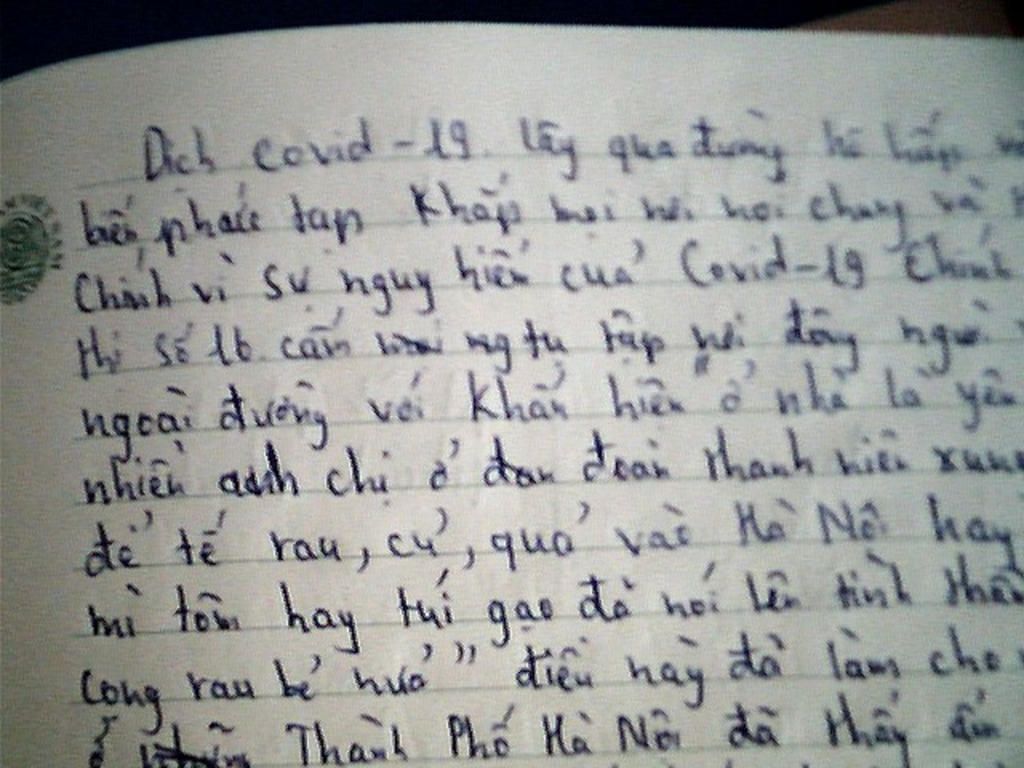 Dịch Covid-19. lây qua đường hô hấp
biến phức tạp khắp mọi nơi nơi chung và
Chính vì sự nguy hiển của Covid-19 Chính
thị số 16. cấm tụ tập nơi đông người
ngoài đường với khẩn hiện "ở nhà là yên
nhiên anh chị ở đoàn thanh niên xung
để tế rau, củ, quả vào Hà Nội hay
mì tôm hay túi gạo đà nói lên tinh thần
cọng rau bẻ nửa" điều này đà làm cho
ở Thành Phố Hà Nội đà thấy